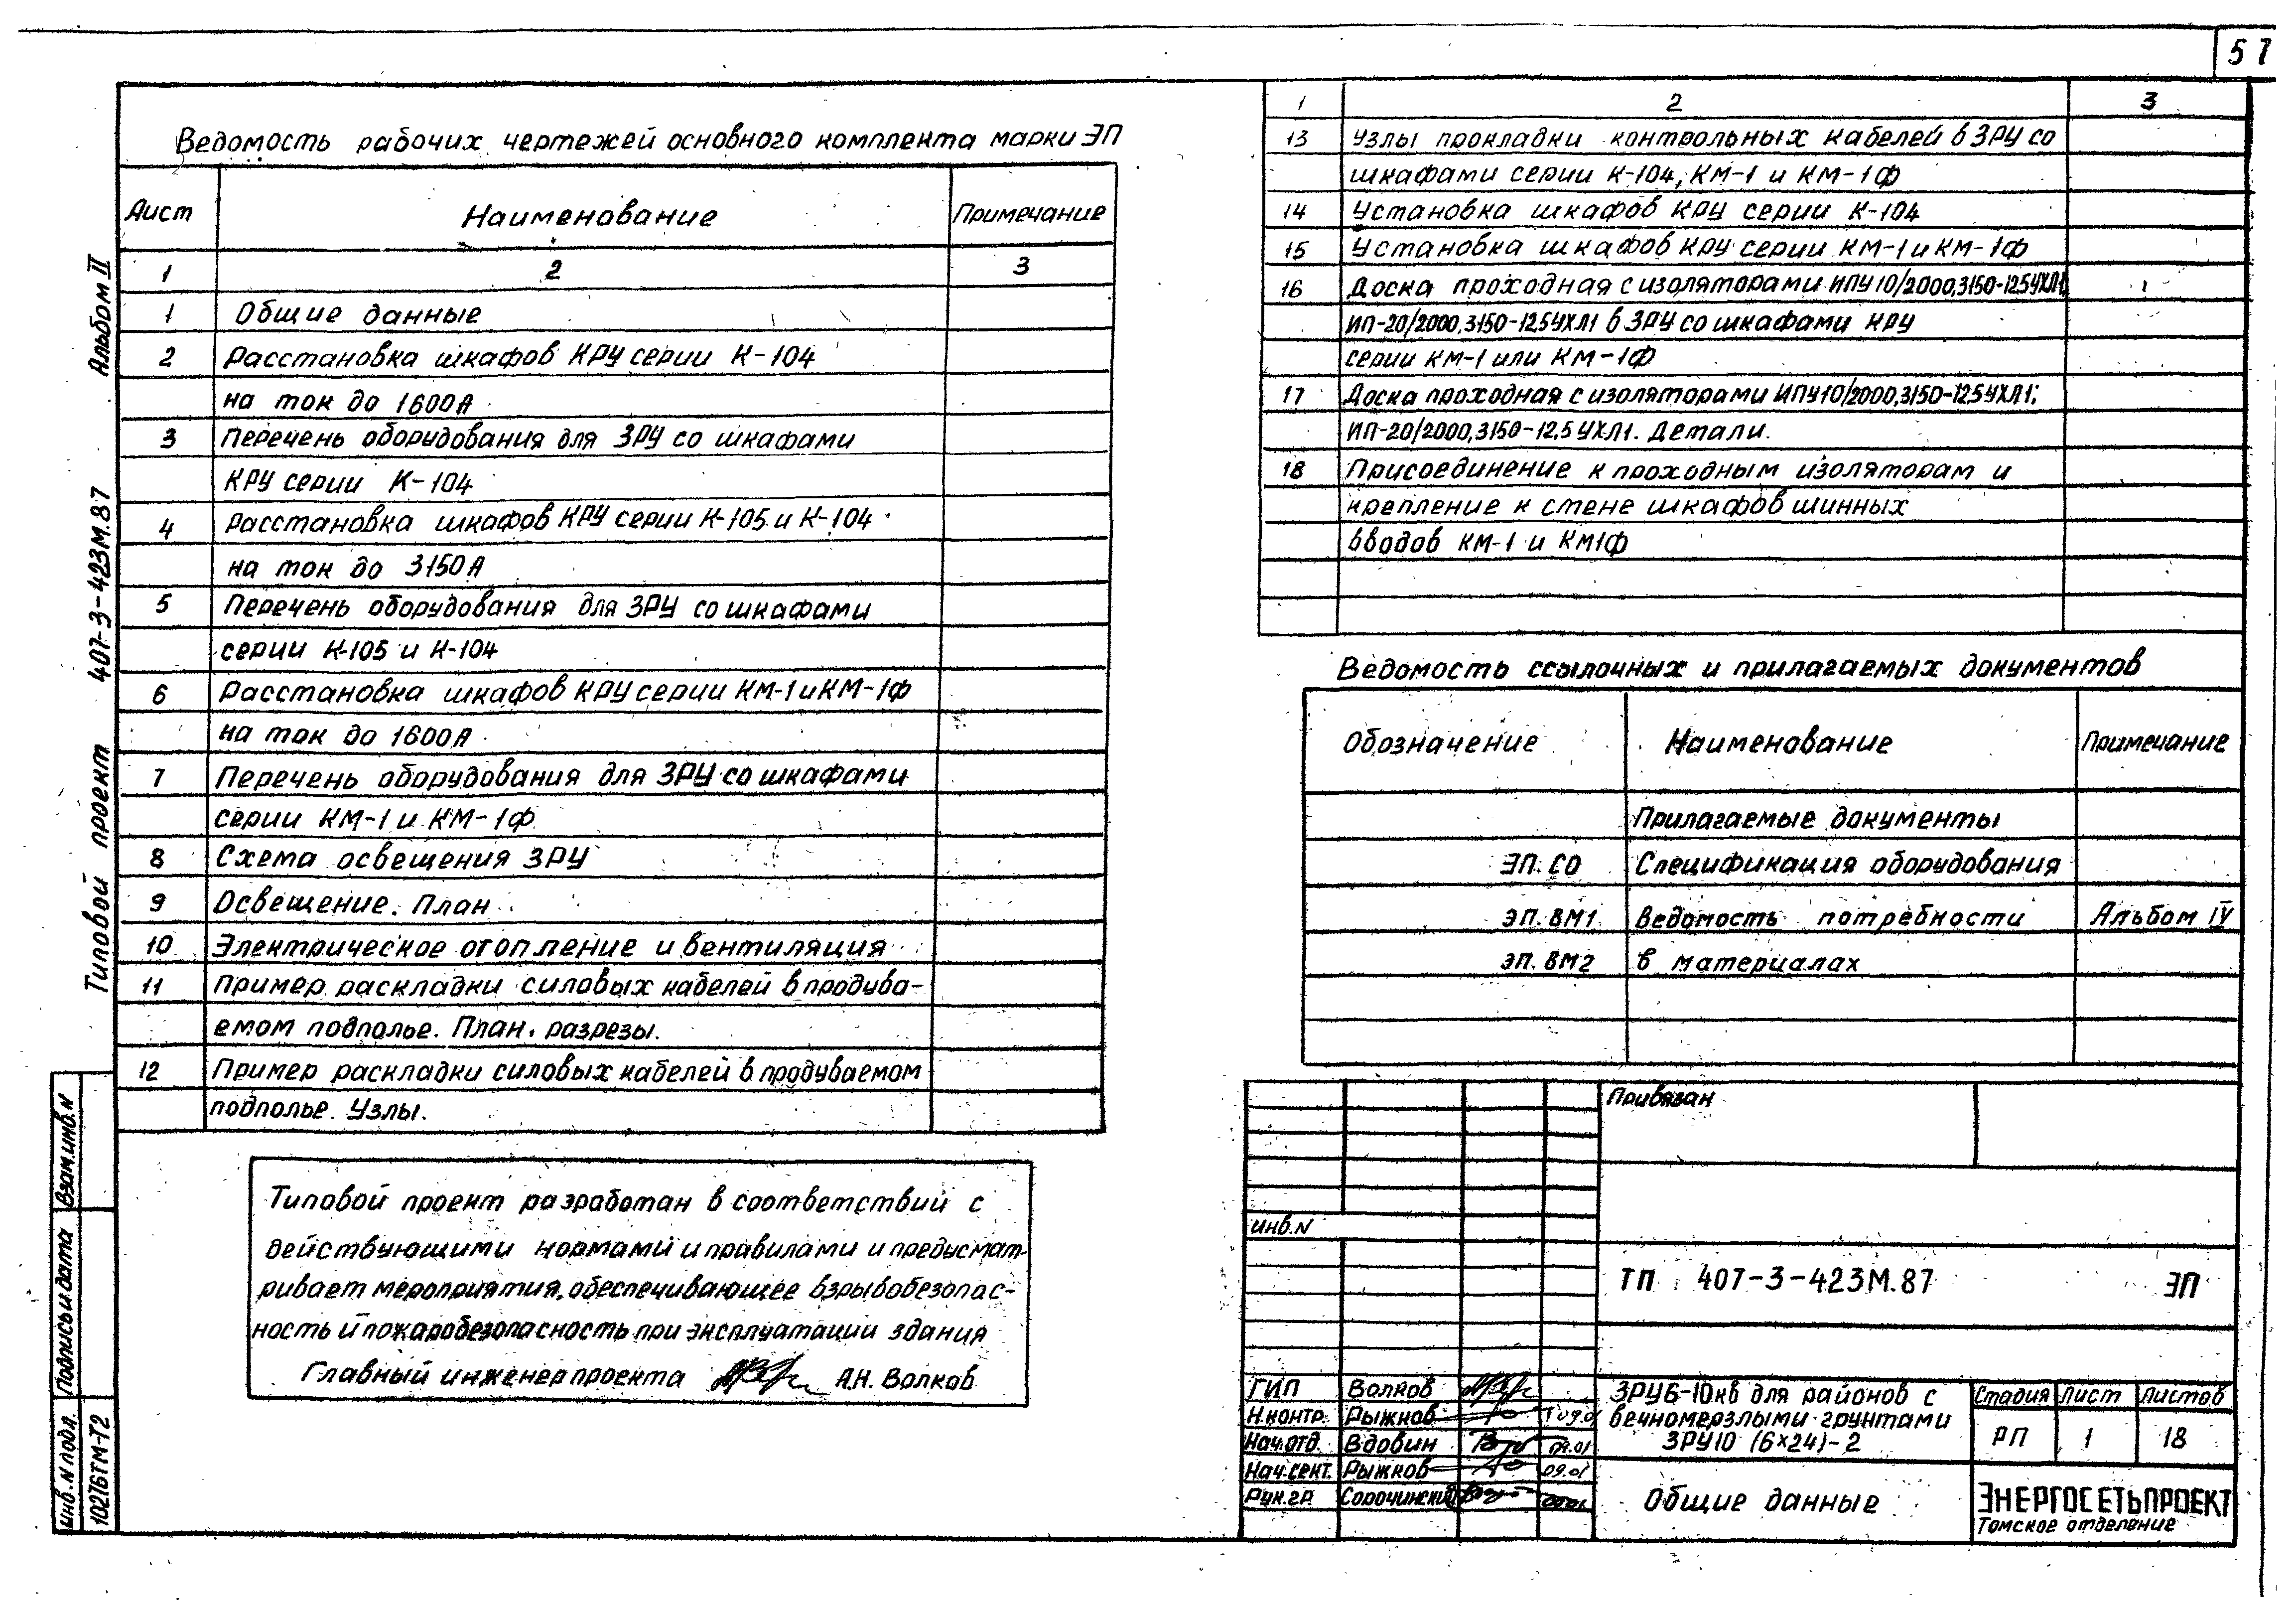 57
Ведомость рабочих чертежей основного комплекта марки ЭП
Лист Наименование Примечание
1 2 3
1 Общие данные
2 Расстановка шкафов КРУ серии К-104
на ток до 1600А
3 Перечень оборудования для ЗРУ со шкафами
КРУ серии К-104
4 Расстановка шкафов КРУ серии К-105 и К-104
на ток до 3150А
5 Перечень оборудования для ЗРУ со шкафами
серии К-105 и К-104
6 Расстановка шкафов КРУ серии КМ-1 и КМ-1Ф
на ток до 1600А
7 Перечень оборудования для ЗРУ со шкафами
серии КМ-1 и КМ-1Ф
8 Схема освещения ЗРУ
9 Освещение. План
10 Электрическое отопление и вентиляция
11 Пример раскладки силовых кабелей в продува-
емом подполье. План. разрезы.
12 Пример раскладки силовых кабелей в продуваемом
подполье. Узлы.
Типовой проект разработан в соответствий с
действующими нормами и правилами и предусмат-
ривает мероприятия, обеспечивающее взрывобезопас-
ность и пожаробезопасность при эксплуатации здания
Главный инженер проекта А.Н. Волков
1 2 3
13 Узлы прокладки контрольных кабелей в ЗРУ со
шкафами серии К-104, КМ-1 и КМ-1Ф
14 Установка шкафов КРУ серии К-104
15 Установка шкафов КРУ серии КМ-1 и КМ-1Ф
16 Доска проходная с изоляторами ИПУ 10/2000,3150-12,5УХЛ1,
ИП-20/2000,3150-12,5УХЛ1 в ЗРУ со шкафами КРУ
серии КМ-1 или КМ-1Ф
17 Доска проходная с изоляторами ИПУ10/2000,3150-12,5УХЛ1;
ИП-20/2000,3150-12,5 УХЛ1. Детали.
18 Присоединение к проходным изоляторам и
крепление к стене шкафов шинных
вводов КМ-1 и КМ1Ф
Ведомость ссылочных и прилагаемых документов
Обозначение Наименование Примечание
Прилагаемые документы
ЭП. СО Спецификация оборудования
ЭП. ВМ1 Ведомость потребности Альбом IV
ЭП. ВМ2 в материалах
Привязан
инв.N
ТП 407-3-423М.87 ЭП
ГИП Волков
Н.контр. Рыжков 09.01
Нач.отд. Вдовин 09.01
Нач.сект. Рыжков 09.01
Рук.гр. Сорочинский
ЗРУ6-10кв для районов с
вечномерзлыми грунтами
ЗРУ10 (6×24)-2
Стадия Лист Листов
РП 1 18
Общие данные
ЭНЕРГОСЕТЬПРОЕКТ
Томское отделение
Типовой проект 407-3-423М.87 Альбом II
Инв.N подл. Подпись и дата Взам.инв.N
10216ТМ-Т2